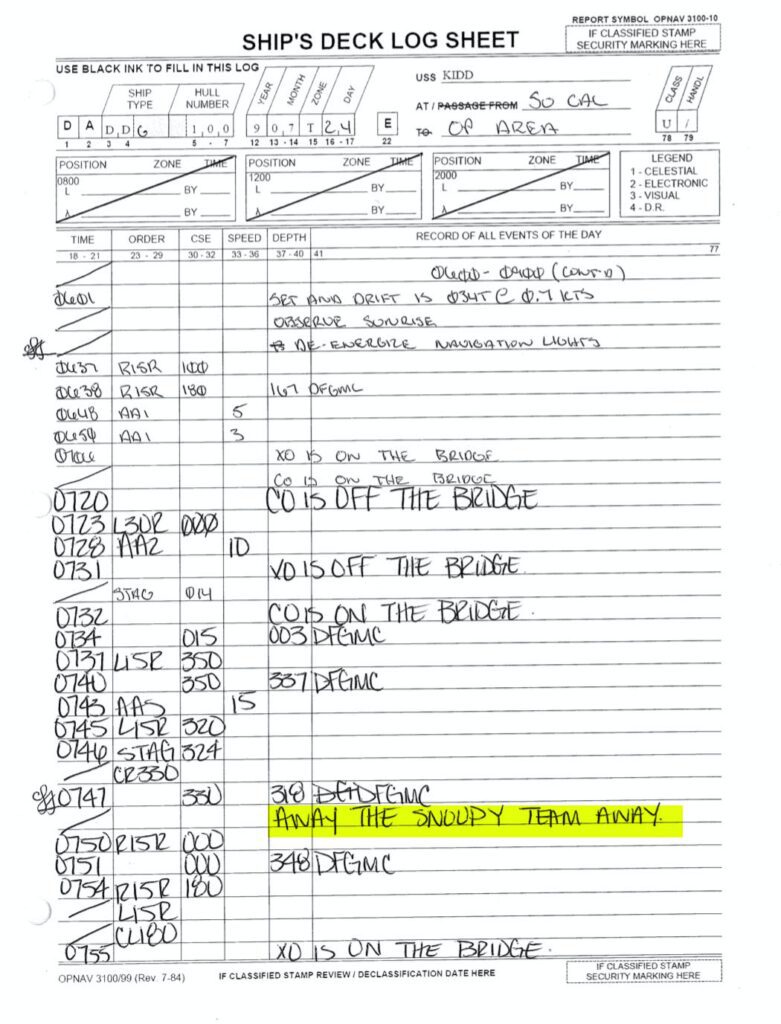 REPORT SYMBOL OPNAV 3100-10
IF CLASSIFIED STAMP
SECURITY MARKING HERE
SHIP'S DECK LOG SHEET
USE BLACK INK TO FILL IN THIS LOG
SHIP TYPE HULL NUMBER YEAR MONTH ZONE DAY
USS KIDD
CLASS HANDL
D A D D G 1 0 0 9 0 7 T 2 4 E
AT / PASSAGE FROM SO CAL
TO OP AREA
U /
1 2 3 4 5 - 7 12 13 - 14 15 16 - 17 22 78 79
POSITION ZONE TIME
0800
L BY
λ BY
POSITION ZONE TIME
1200
L BY
λ BY
POSITION ZONE TIME
2000
L BY
λ BY
LEGEND
1 - CELESTIAL
2 - ELECTRONIC
3 - VISUAL
4 - D.R.
TIME ORDER CSE SPEED DEPTH RECORD OF ALL EVENTS OF THE DAY
18 - 21 23 - 29 30 - 32 33 - 36 37 - 40 41 77
0600 - 0900 (CONT'D)
0601 SET AND DRIFT IS 034T @ 0.7 KTS
OBSERVE SUNRISE
DE-ENERGIZE NAVIGATION LIGHTS
0637 R15R 100
0638 R15R 180 167 DFGMC
0648 AA1 5
0650 AA1 3
XO IS ON THE BRIDGE
CO IS ON THE BRIDGE
0720 CO IS OFF THE BRIDGE
0723 L30R 000
0728 AA2 10
0731 XO IS OFF THE BRIDGE
STAG 014
0732 CO IS ON THE BRIDGE.
0734 015 003 DFGMC
0737 L15R 350
0740 350 337 DFGMC
0743 AA5 15
0745 L15R 320
0746 STAG 324
CR330
0747 330 318 DFGMC
AWAY THE SNOOPY TEAM AWAY.
0750 R15R 000
0751 000 348 DFGMC
0754 R15R 180
L15R
CL180
0755 XO IS ON THE BRIDGE.
OPNAV 3100/99 (Rev. 7-84)
IF CLASSIFIED STAMP REVIEW / DECLASSIFICATION DATE HERE
IF CLASSIFIED STAMP
SECURITY MARKING HERE